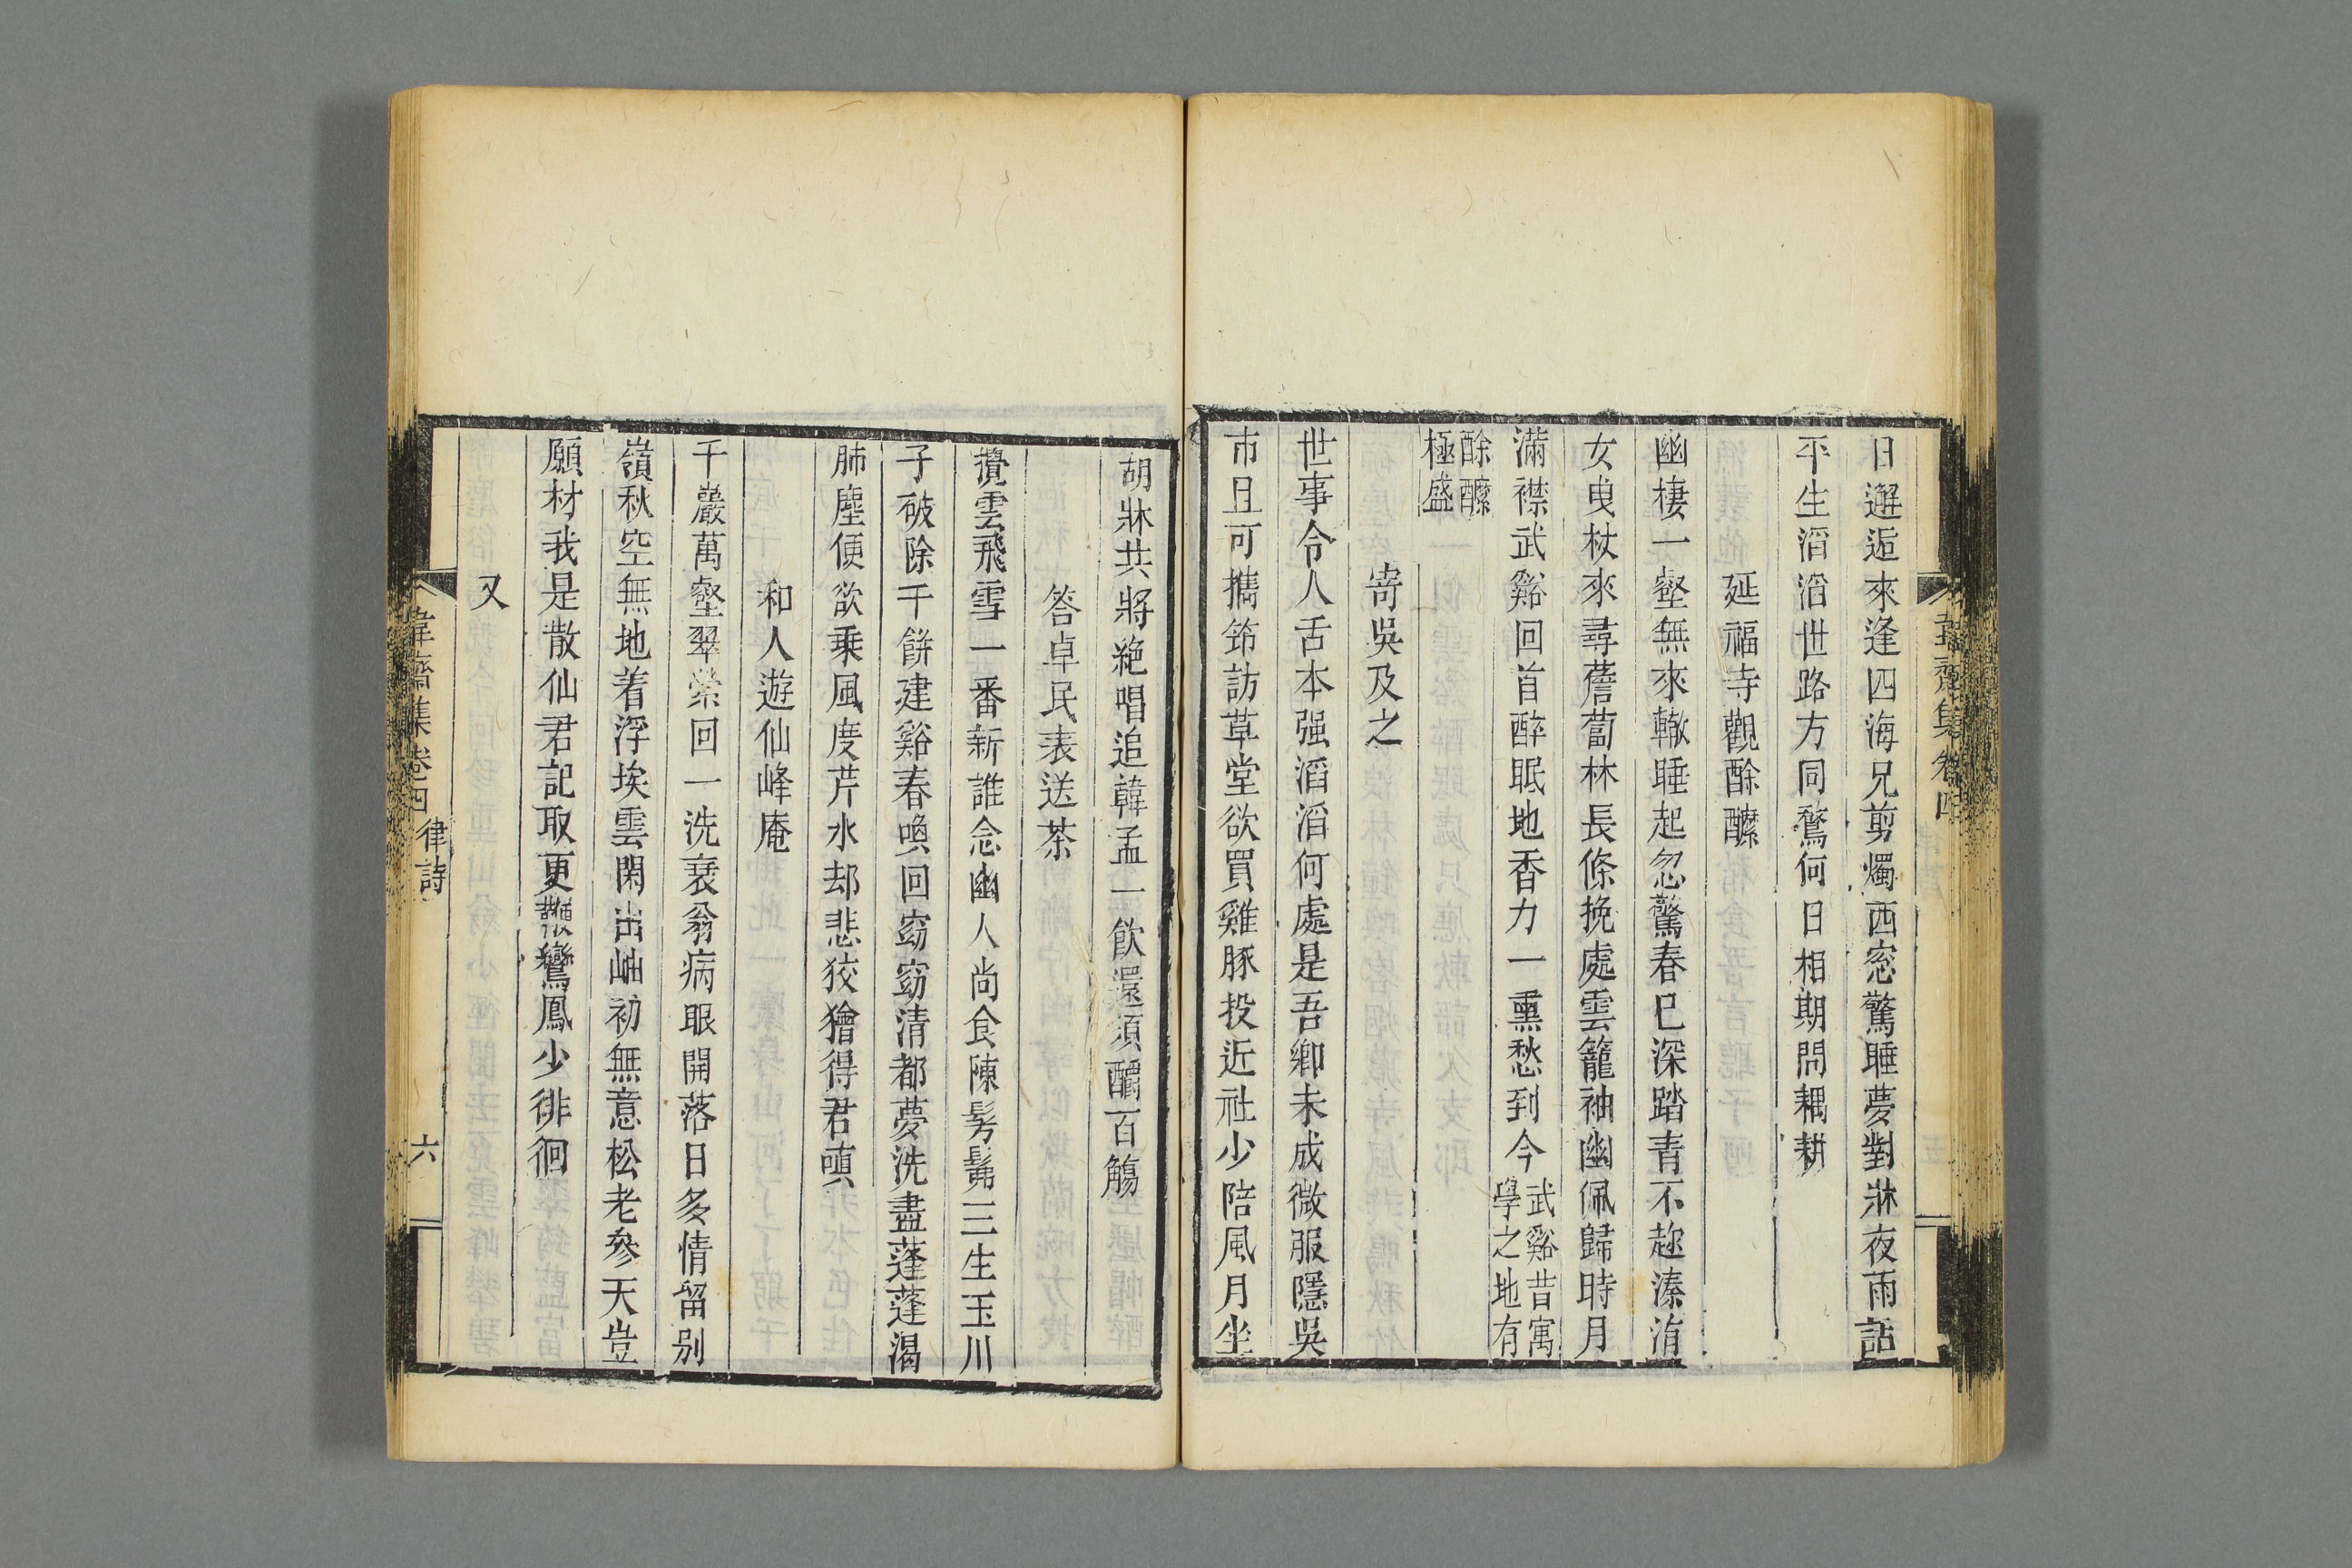 日邂逅來逢四海兄剪燭西窓驚睡夢對牀夜雨話
平生滔滔世路方同騖何日相期問耦耕
延福寺觀酴醾
幽棲一壑無來轍睡起忽驚春已深踏青不趂溱洧
女曳杖來尋薝蔔林長條挽處雲籠袖幽佩歸時月
滿襟武谿回首醉眠地香力一熏愁到今武谿昔寓學之地有
酴醾極盛
寄吳及之
世事令人舌本强滔滔何處是吾鄉未成微服隱吳
市且可攜筇訪草堂欲買雞豚投近社少陪風月坐
胡牀共將絶唱追韓孟一飲還須釂百觴
答卓民表送茶
攪雲飛雪一番新誰念幽人尚食陳髣髴三生玉川
子破除千餅建谿春喚回窈窈清都夢洗盡蓬蓬渴
肺塵便欲乗風度芹水却悲狡獪得君嗔
和人遊仙峰庵
千巖萬壑翠縈回一洗衰翁病眼開落日多情留别
嶺秋空無地着浮埃雲閑出岫初無意松老參天豈
願材我是散仙君記取更鸞鳳少徘徊
又
韋齋集卷四
律詩
六